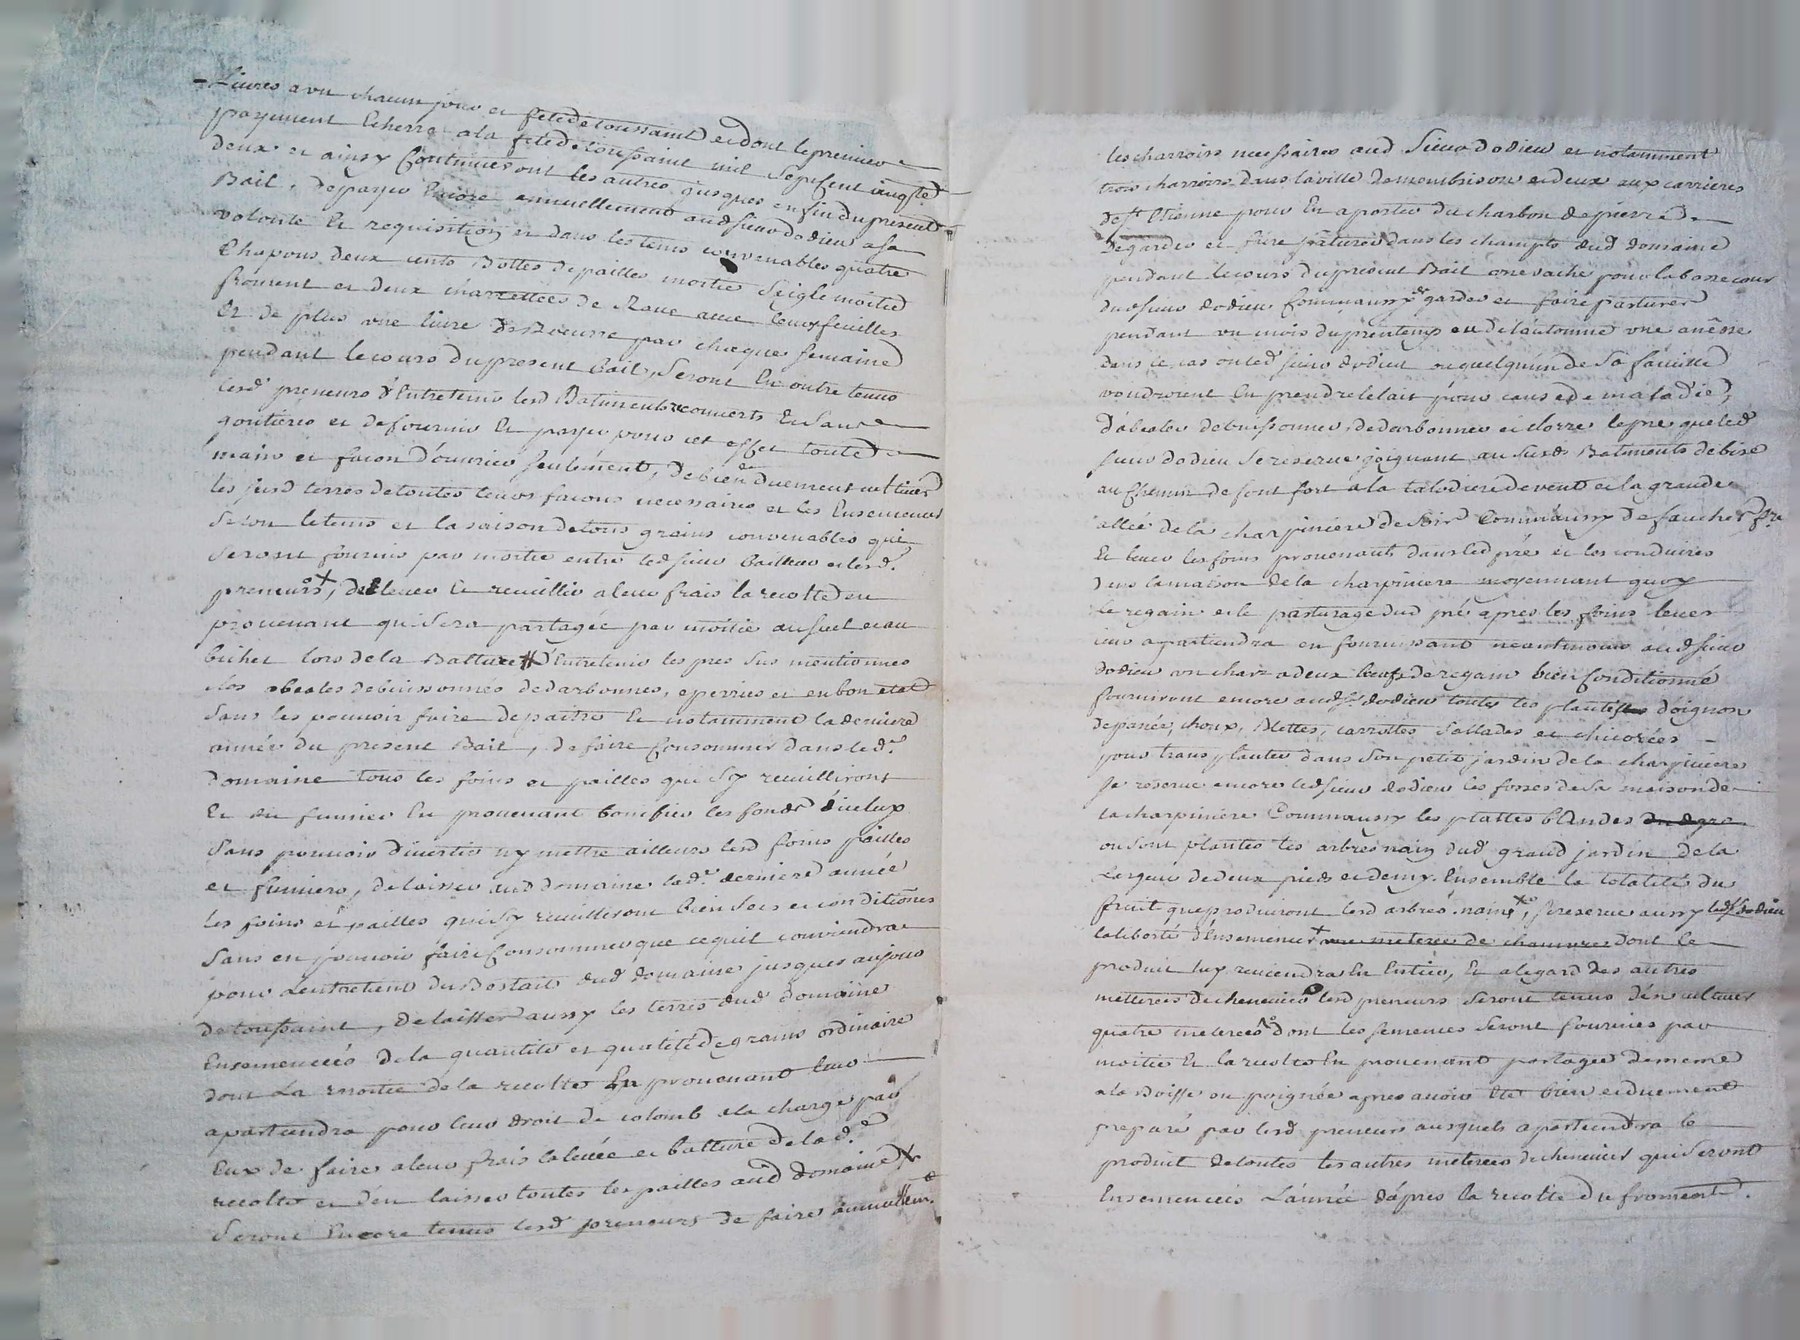 Livres a vn chacun jour et fête de toussaint et dont le premier
payement Echerra a la fête de toussaint mil sept cent vingt
deux et ainsy Continueront les autres jusques en fin du present
Bail, de payer Encore annuellement aud sieur dodieu a sa
volonte Et requisition et dans les tems convenables quatre
Chapons, deux cents Bottes de pailles moitie seigle moitié
froment et deux charrettées de Rave avec leurs feuilles
Et de plus vne livre de Beurre par chaque semaine
pendant le cours du present bail, Seront En outre tenus
lesd preneurs d'Entretenir lesd Batiments couverts En sans
goutieres et de fournir Et payer pour cet effet toute
main et facon d'ouvrier seulement, de bien et duement cultiver
les susd terres de toutes leurs facons necessaires et les Ensemencer
selon le tems et la saison de tous grains convenables qui
seront fournis par moitie entre led sieur bailleur et lesd.
preneurs, de lever et recuillir a leur frais la recolte en
provenant qui sera partagée par moitie au suel et au
bichet lors de la Batture d'Entretenir les pres sus mentionnes
clos abeales debuissonnés dedarbonnes, eperries et en bon etat
sans les pouvoir faire depaitre Et notamment la derniere
année du present Bail, de faire Consommer dans led.
domaine tous les foins et pailles qui s'y recuilliront
Et du fumier En provenant bonifier les fonds d'iceluy
sans pouvoir divertir ny mettre ailleurs lesd foins pailles
et fumiers, de laisser aud domaine lad. derniere année
les foins et pailles qui s'y recuilliront bien secs et conditiones
sans en pouvoir faire Consommer que ce qu'il conviendra
pour L'entretient du Bestail dud domaine jusques au jour
de toussaint, de laisser aussy les terres dud domaine
Ensemencées de la quantité et qualité de grains ordinaire
dont La moitie de la recolte En provenant leur
apartiendra pour leur droit de colomb a la charge par
Eux de faire a leur frais la levée et batture de lad.
recolte et d'en laisser toutes les pailles aud domaine
Seront Encore tenus lesd preneurs de faire annuellem.
les charrois necessaires aud Sieur dodieu et notamment
trois charrois dans la ville de monbrison et deux aux carrieres
de st Etienne pour En aporter du charbon de pierre
de garder et faire pâturer dans les champs dud domaine
pendant le cours du present Bail une vache pour la basse cour
dud sieur dodieu Comm'aussy de garder et faire pasturer
pendant vn mois du printems ou de l'automne vne anêsse
dans le cas ou led sieur dodieu ou quelqu'un de sa famille
voudroient En prendre le lait pour cause de maladie,
d'abealer debuissonner, dedarbonner et clorre le pre que led
sieur dodieu se reserve joignant au susd Batiments de bise
au Chemin de font fort a la de vent et la grande
allée de la charpiniere de soir Comm'aussy de faucher
Et lever les foins provenants dans led pré et les conduires
dans la maison de la charpiniere moyennant quoy
le regain et le pasturage dud pré apres les foins levés
leur apartiendra en fournissant neantmoins aud sieur
dodieu vn char a deux boeufs de regain bien Conditionné
fourniront encore aud sr. dodieu toutes les plantes d'oignon
de panée, choux, Blettes, carrottes Sallades et chicorées
pour transplanter dans son petit jardin de la charpiniere
Se reserve encore led sieur dodieu les fosses de la maison de
la charpiniere Comm'aussy les plattes blandes
ou sont plantés les arbres nain dud grand jardin de la
Largeur de deux pieds et demy Ensemble la totalité du
fruit que produiront lesd arbres nains, se reserve aussy led Sr dodieu
la liberté d'Ensemencer vne meteree de chanvre dont le
produit luy reviendra En Entier, Et a legard des autres
metterées de chenevier lesd preneurs seront tenus d'en cultiver
quatre meterees dont les semences seront fournies par
moitie Et la recolte En provenant partagée de meme
a la ou poignée apres avoir été bien et duement
preparé par lesd preneurs ausquels apartiendra le
produit de toutes les autres meterees de chenevier qui seront
Ensemencées L'année d'apres la recolte du froment.